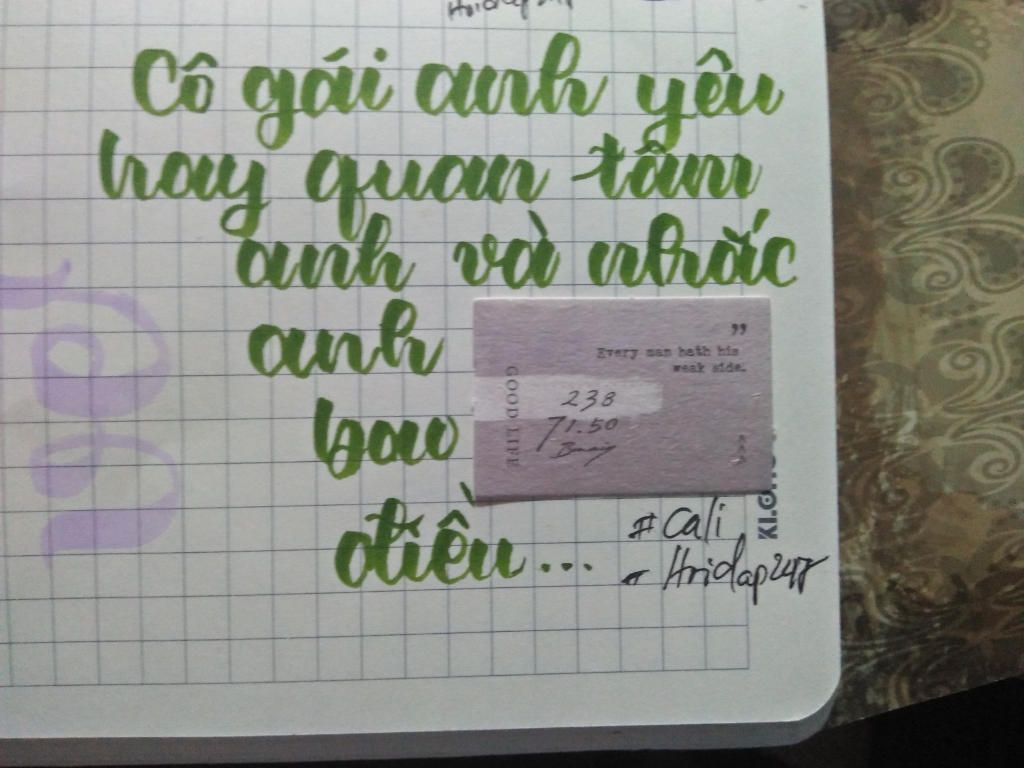 Cô gái anh yêu
hay quan tâm
anh và nhắc
anh
bao
điều...
”
Every man hath his
weak side.
GOOD LIFE
238
71.50
#Cali
- Hoidap247